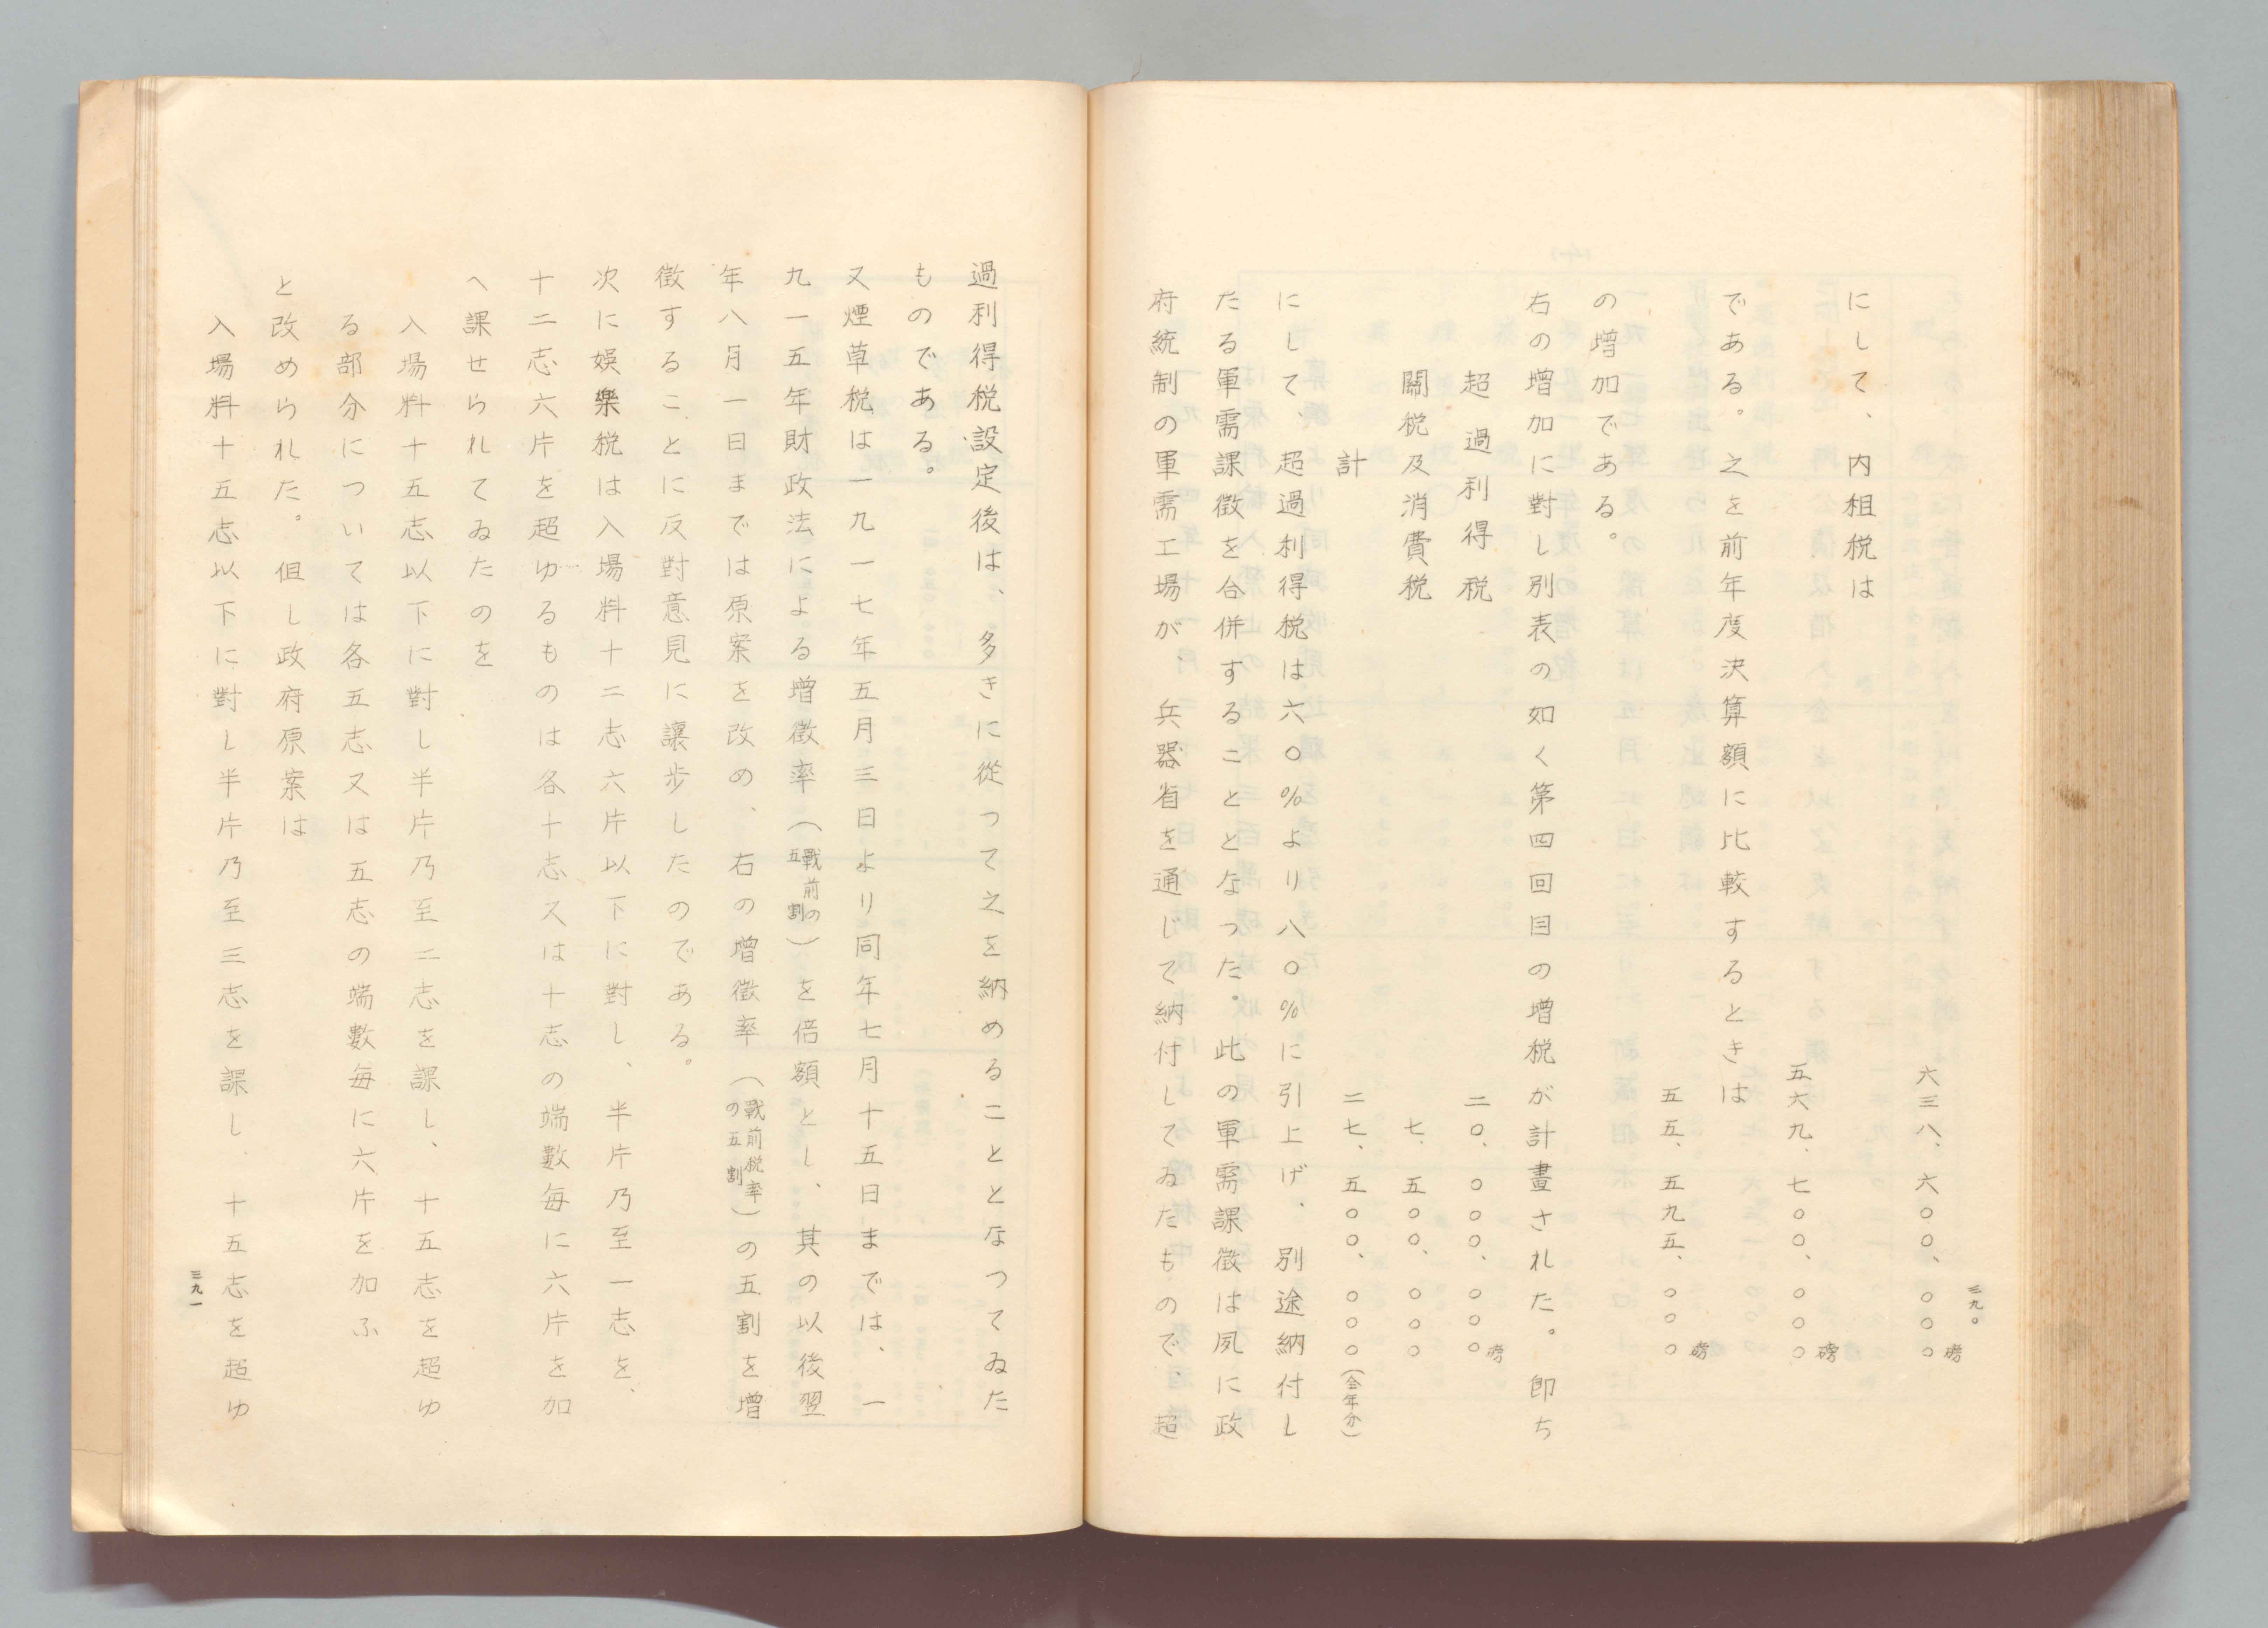 三九〇
六三八、六〇〇、〇〇〇磅
にして、内租税は
五六九、七〇〇、〇〇〇磅
である。之を前年度決算額に比較するときは
五五、五九五、〇〇〇磅
の増加である。
右の増加に對し別表の如く第四回目の増税が計畫された。卽ち
超過利得税 二〇、〇〇〇、〇〇〇磅
關税及消費税 七、五〇〇、〇〇〇
計 二七、五〇〇、〇〇〇(全年分)
にして、超過利得税は六〇%より八〇%に引上げ、別途納付し
たる軍需課徴を合併することとなつた。此の軍需課徴は夙に政
府統制の軍需工場が、兵器省を通じて納付してゐたもので、超
過利得税設定後は、多きに從つて之を納めることとなつてゐた
ものである。
又煙草税は一九一七年五月三日より同年七月十五日までは、一
九一五年財政法による増徴率(戰前の五割)を倍額とし、其の以後翌
年八月一日までは原案を改め、右の増徴率(戰前税率の五割)の五割を増
徴することに反對意見に讓歩したのである。
次に娯樂税は入場料十二志六片以下に對し、半片乃至一志を、
十二志六片を超ゆるものは各十志又は十志の端數毎に六片を加
へ課せられてゐたのを
入場料十五志以下に對し半片乃至二志を課し、十五志を超ゆ
る部分については各五志又は五志の端數毎に六片を加ふ
と改められた。但し政府原案は
入場料十五志以下に對し半片乃至三志を課し、十五志を超ゆ
三九一